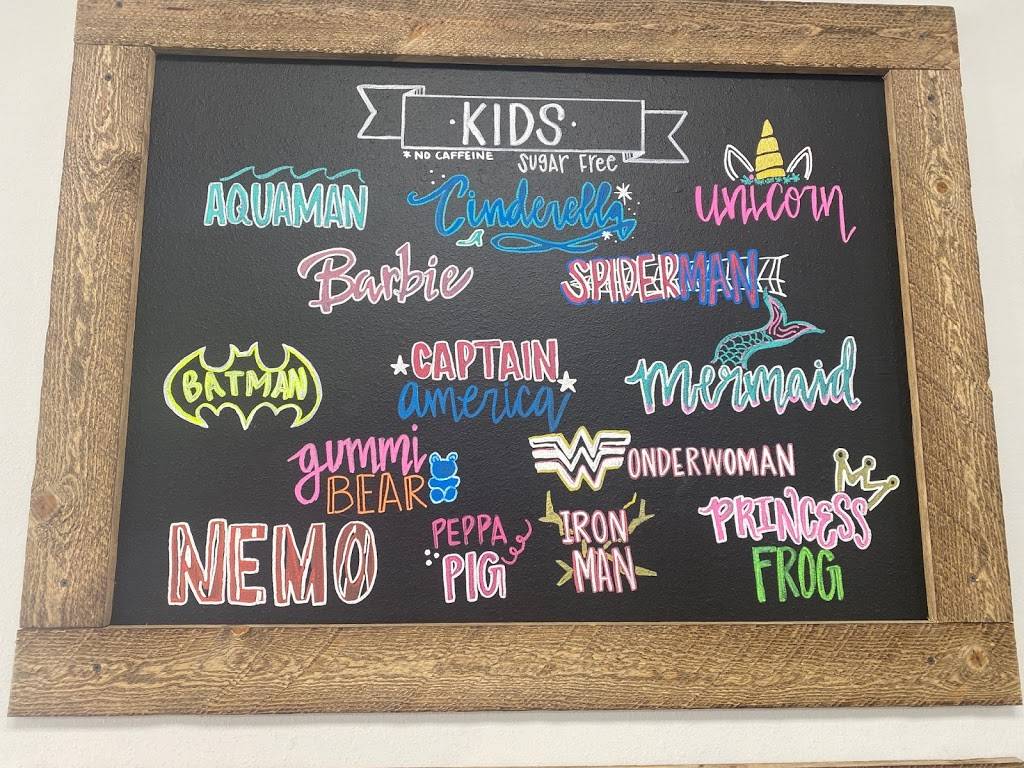 ·KIDS·
*NO CAFFEINE SUGAR FREE
AQUAMAN
Cinderella
unicorn
Barbie
SPIDERMAN
BATMAN
CAPTAIN
america
mermaid
gummi
BEAR
WONDERWOMAN
NEMO
PEPPA
PIG
IRON
MAN
PRINCESS
FROG